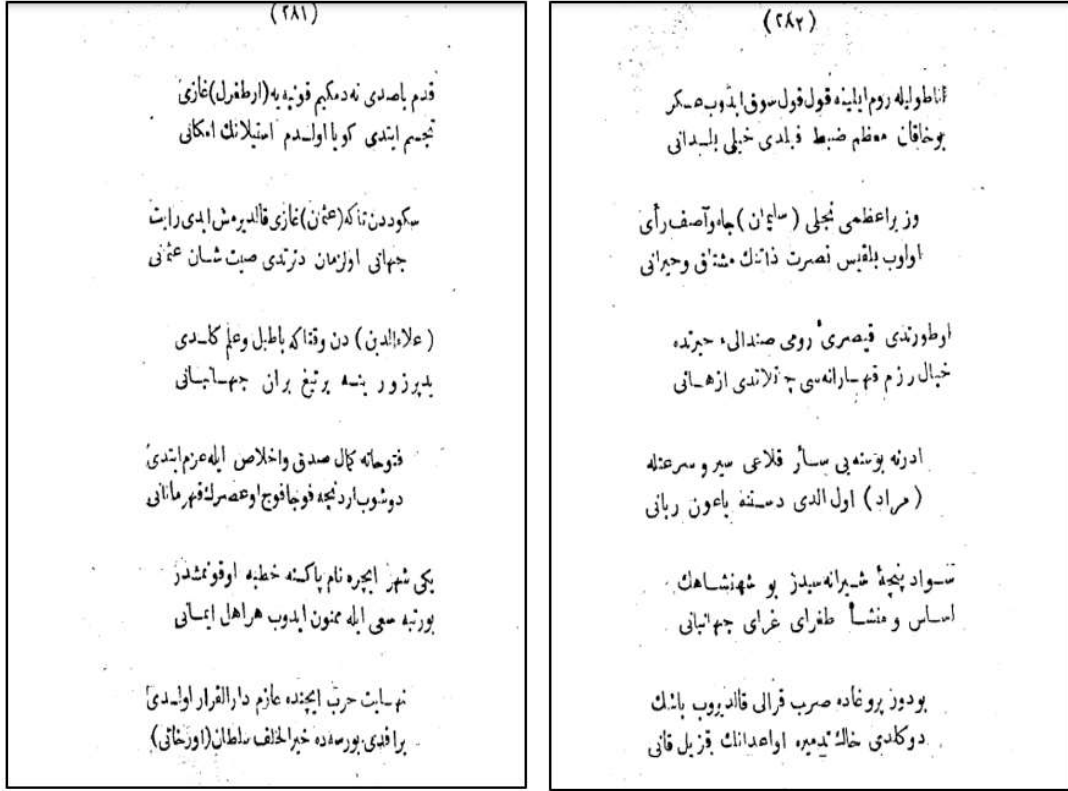 (٢٨١)
قدم باصدی نه دمکیم قونیه یه (ارطغرل) غازی
تجسم ایتدی کویا اولـدم استیلانك امکانی
سکوددن تاکه (عثمان) غازی قالدیرمش ایدی رایت
جهانی اولزمان دترتدی صیت شـان عثمانی
(علاءالدین) دن وقتاکه باطبل وعلم کلـدی
یدپرزور ینـه برتیغ بران جهـانبانی
فتوحاته کمال صدق واخلاص ایله عزم ایتدی
دوشوب اردنجه فوجا فوج اوعصرك قهرمانانی
یکی شهر ایچره نام پاکنه خطبه اوقونمشدر
بورتبه سعی ایله ممنون ایدوب هر اهل ایمـانی
نهـایت حرب ایچنده عازم دارالقرار اولـدی
براقدی بورسه ده خیرالخلف سلطان (اورخانی)
(٢٨٢)
اناطولیله روم ایلینه قول قول سوق ایدوب عسکر
بوخاقان معظم ضبط قیلدی خیلی بلـدانی
وزیراعظمی نجلی (سلیمان) جاه وآصف رأی
اولوب بلقیس نصرت ذاتنك مشتاق وحیرانی
اوطورتدی قیصری رومی صندالیٔ حیرتده
خیال رزم قهـارانه سی چتلاتدی ازهـانی
ادرنه بوسنه یی سـائر قلاعی سیر و سرعتله
(مراد) اول الدی دسـتنه باعون ربانی
سـواد پنچهٔ شـیرانه سیدر بو شهنشـاهك
اسـاس و منشـأ طغرای غرای جهانبانی
بودوز پروغاده صرب قرالی قالدیروب باشك
دوکلدی خاك تدمیره اواعدانك قزیل قانی